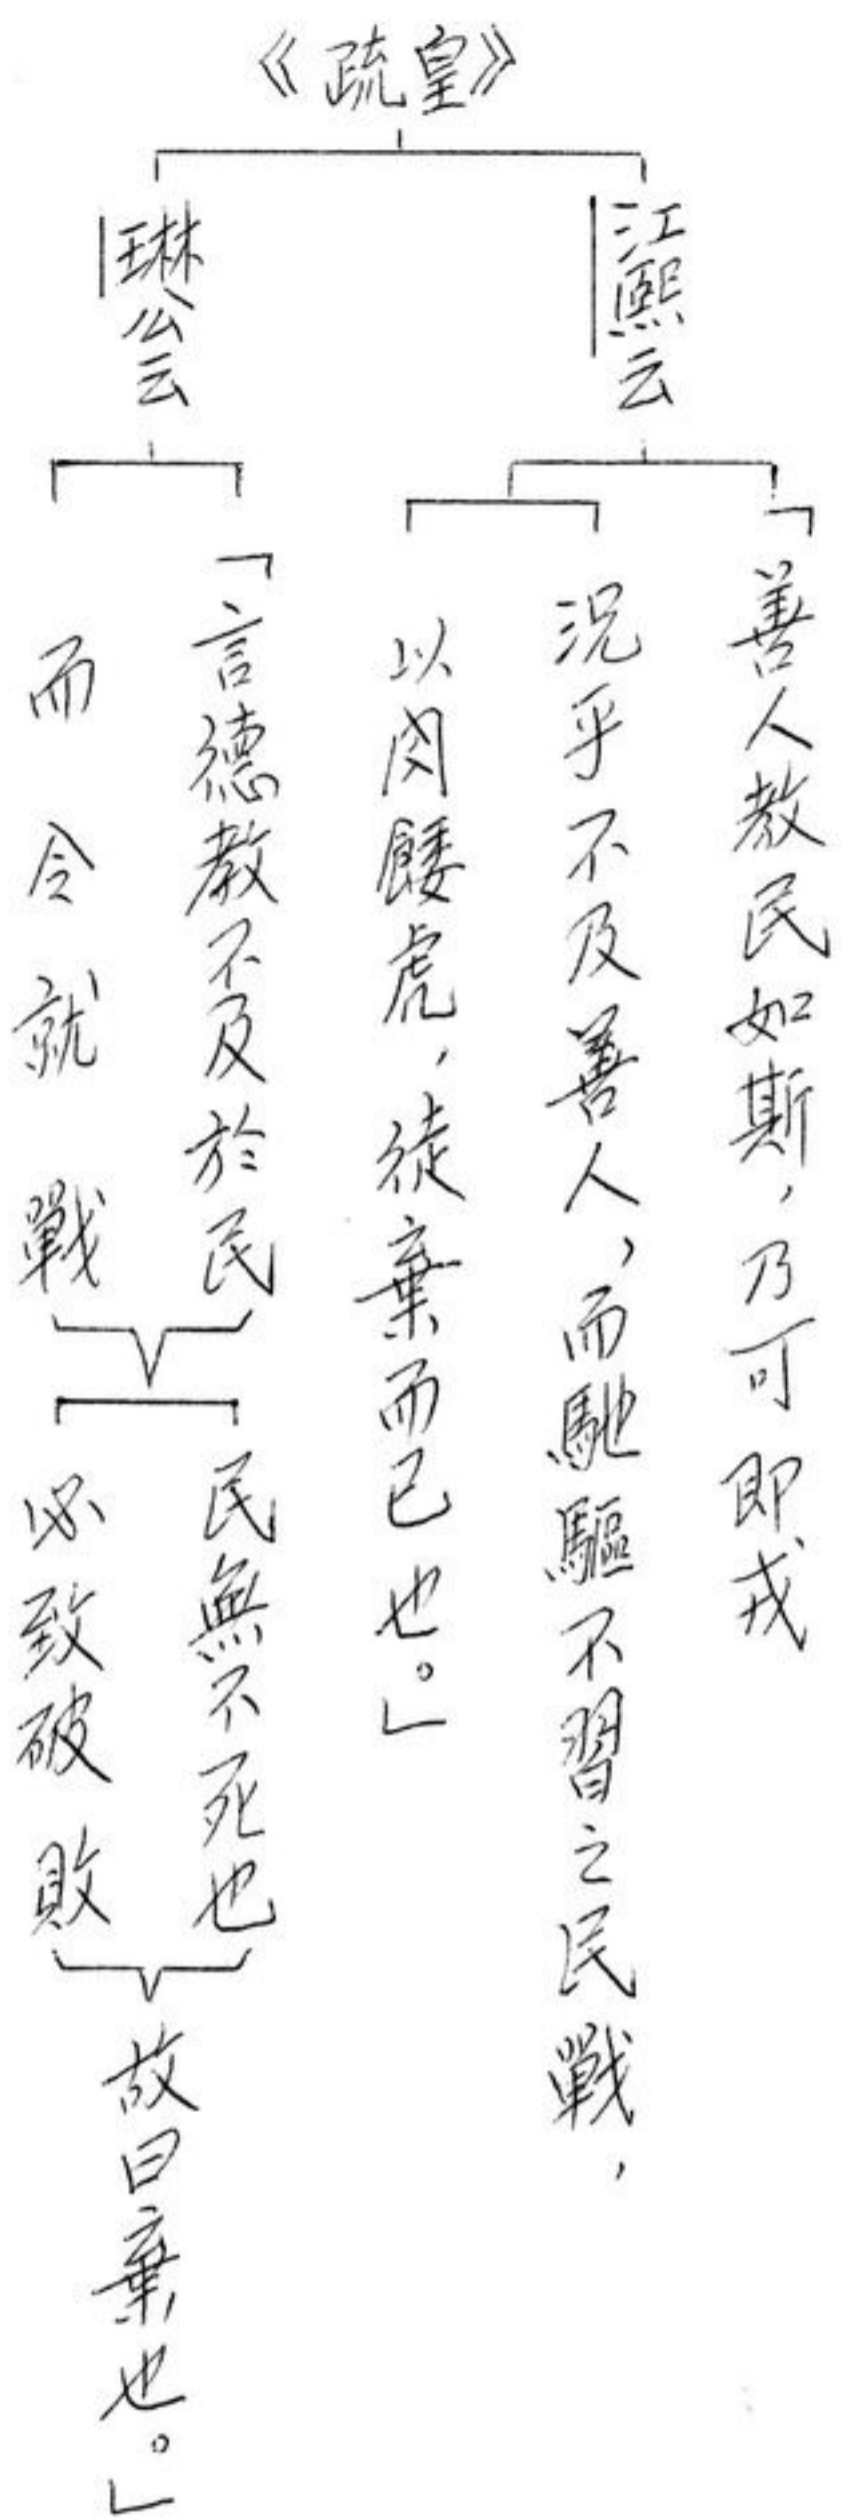 《皇疏》
江熙云
「善人教民如斯，乃可即戎
況乎不及善人，而馳驅不習之民戰，
以肉餧虎，徒棄而已也。」
琳公云
「言德教不及於民
而令就戰
民無不死也
必致破敗
故曰棄也。」